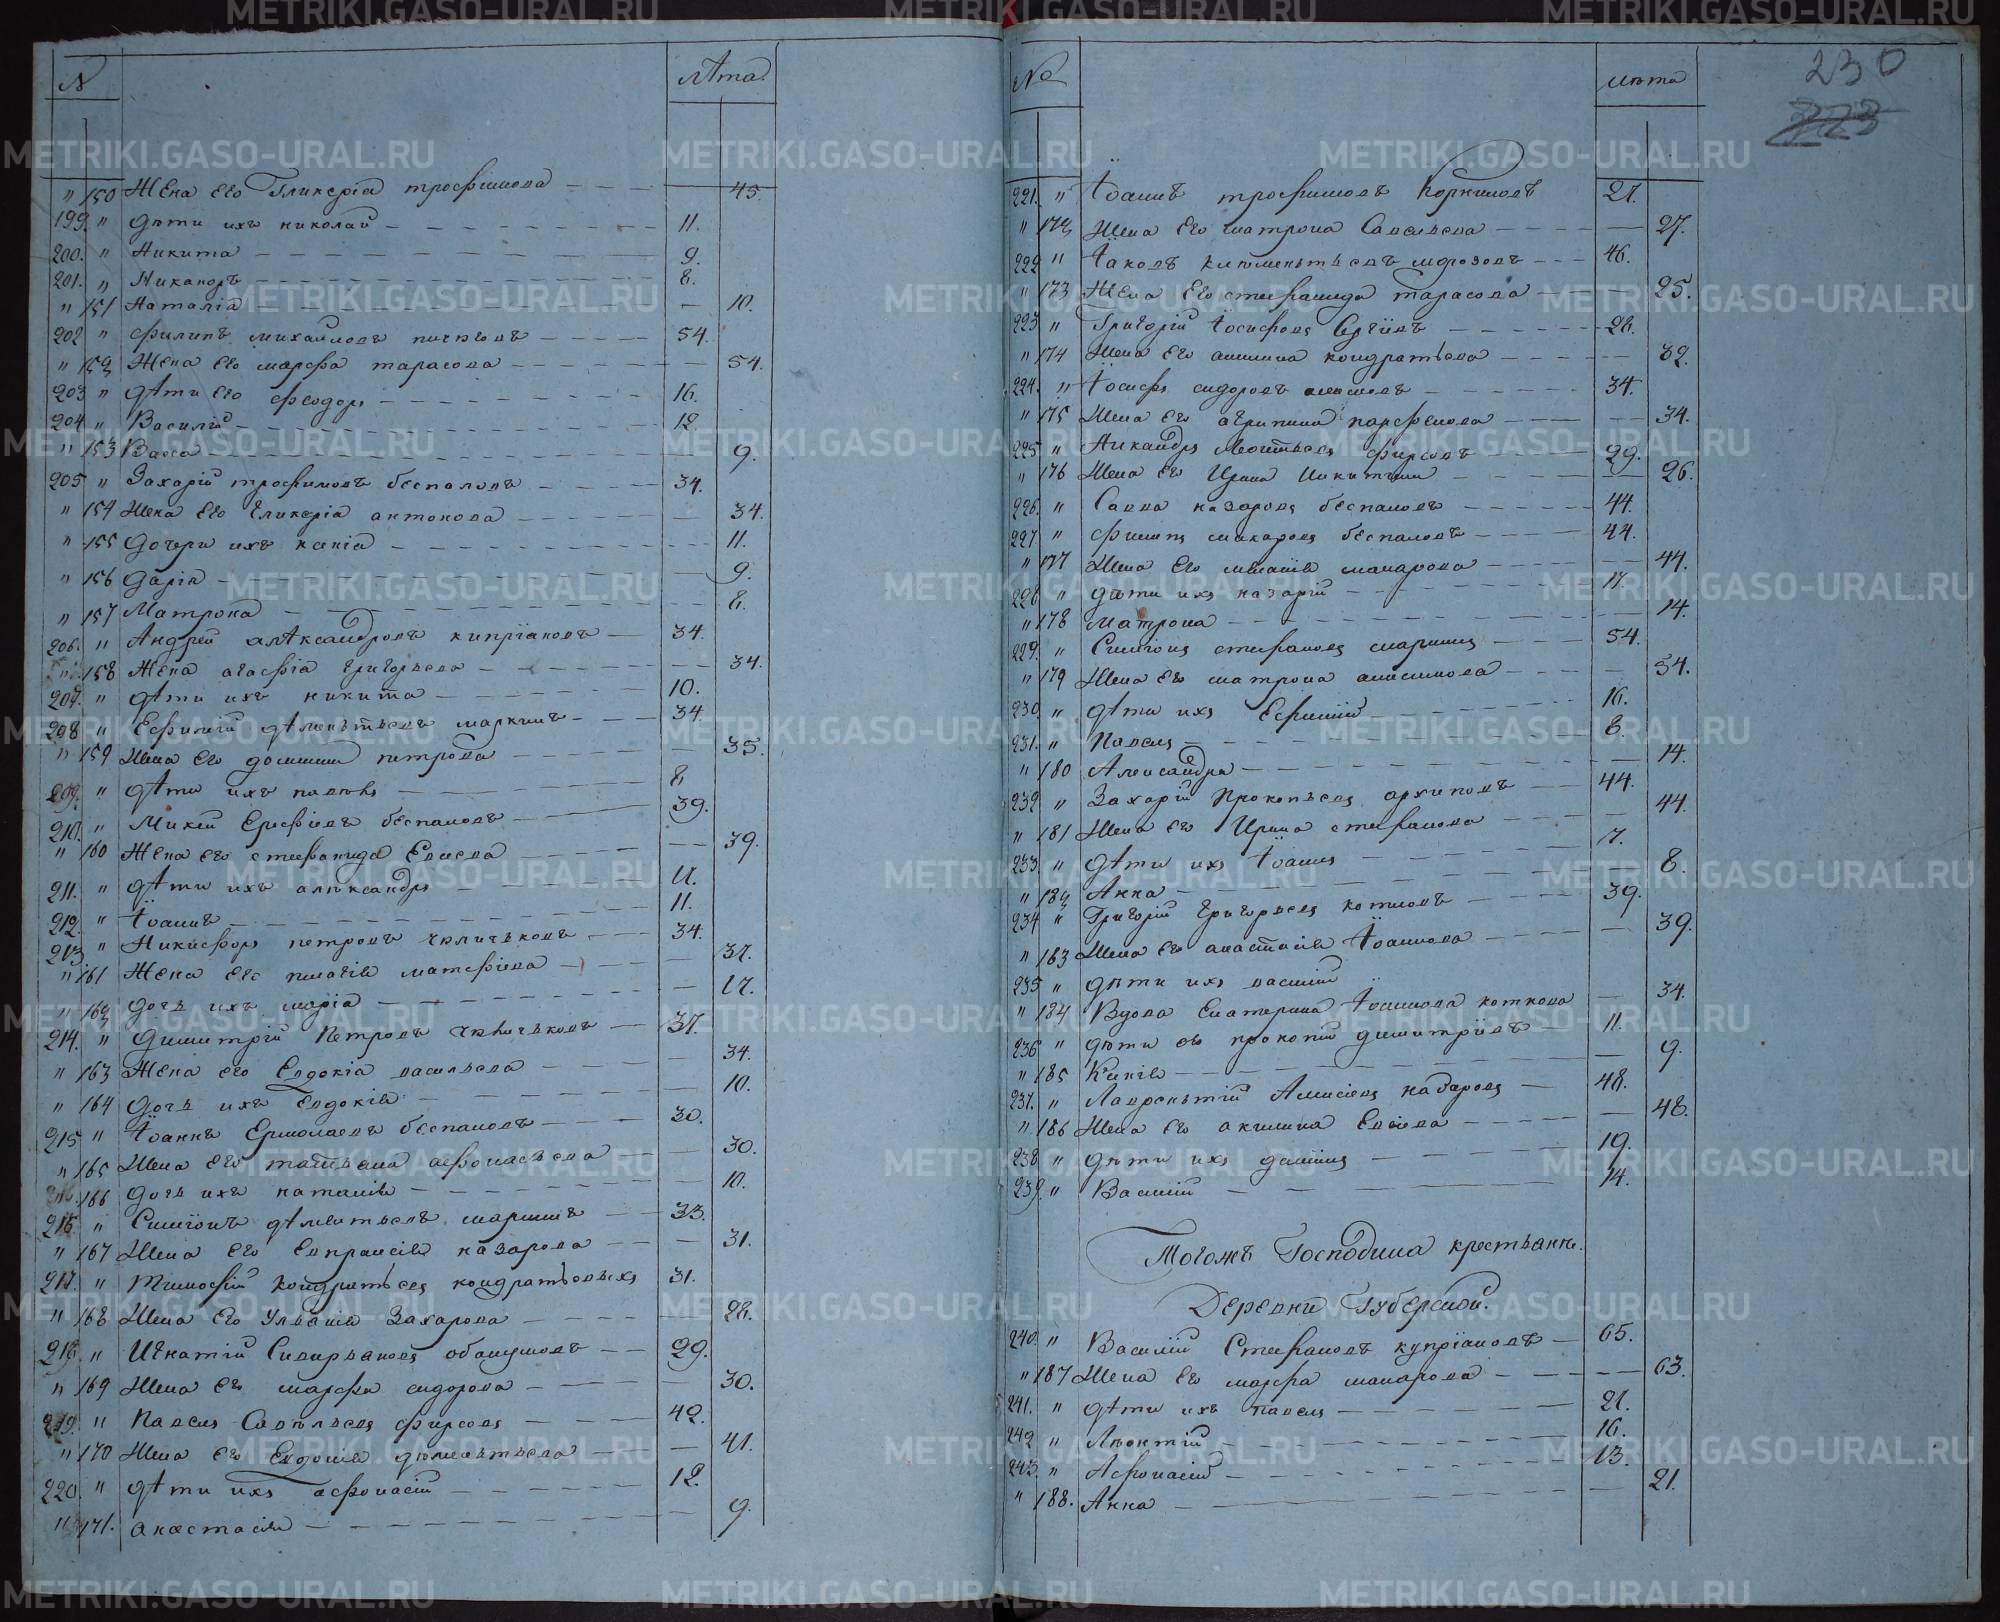 № лѣта
" 150 Жена его Гликерія трофимова 45.
199 " дѣти ихъ николай 11.
200. " Никита 9.
201. " Никаноръ 8.
" 151 Наталія 10.
202 " филипъ михаиловъ 54.
" 152 Жена его марфа тарасова 54.
203 " дѣти его феодоръ 16.
204 " Василій 12
" 153 Васса 9.
205 " Захарій трофимовъ беспаловъ 34.
" 154 Жена его гликерія антонова 34.
" 155 Дочери ихъ ксенія 11.
" 156 Дарія 9.
" 157 Матрона 8.
206. " Андрей алѣксандровъ кипріановъ 34.
" 158 Жена агафія григорьева 34.
207. " дѣти ихъ никита 10.
208 " Ефимій дѣментьевъ маркинъ 34.
" 159 Жена его петрова 35.
209. " дѣти ихъ 8.
210. " Ерефіевъ беспаловъ 39.
" 160 Жена его стефанида Евсева 39.
211. " дѣти ихъ алѣксандръ 17.
212. " Іоаннъ 11.
213. " Никифоръ петровъ 34.
" 161 Жена его пелагія матфіева 37.
" 162 дочь ихъ марія 17.
214. " Димитрій Петровъ 37.
" 163 Жена его Евдокія васильева 34.
" 164 Дочь ихъ Евдокія 10.
215 " Іоаннъ Ермолаевъ беспаловъ 30.
" 165 Жена его татьяна афонасьева 30.
" 166 дочь ихъ наталія 10.
216 " Симіонъ дѣментьевъ маркинъ 33.
" 167 Жена его Евпраксія назарова 31.
217. " Тимофій кондратьевъ кондратьевыхъ 31.
" 168 Жена его Ульянія Захарова 28.
218. " Игнатій 29.
" 169 Жена его марфа сидорова 30.
219. " Павелъ Савѣльевъ фирсовъ 42.
" 170 Жена его Евдокія дементьева 41.
220. " дѣти ихъ афонасій 12.
" 171. анастасія 9.
№ лѣта 230
223
221. " Іоаннъ трофимовъ Корниловъ 27.
" 172 Жена его матрона Савельева 27.
222 " Іаковъ клементьевъ морозовъ 46.
" 173 Жена его стефанида тарасова 25.
223 " Григорій Іосифовъ Сергіевъ 28.
" 174 Жена его кондратьева 32.
224. " Іосифъ сидоровъ 34.
" 175 Жена его агрипина парфенова 34.
225 " Никандръ фирсовъ 29.
" 176 Жена его Ирина 26.
226. " Савва назаровъ беспаловъ 44.
227 " филипъ макаровъ беспаловъ 44.
" 177 Жена его макарова 44.
228 " дѣти ихъ назарій 17.
" 178 Матрона 14.
229. " Симіонъ стефановъ маркинъ 54.
" 179 Жена его матрона анисимова 54.
230. " дѣти ихъ Ефимій 16.
231. " Павелъ 8.
" 180 Александра 14.
232 " Захарій Прокопьевъ архиповъ 44.
" 181 Жена его Ирина стефанова 44.
233. " дѣти ихъ Іоаннъ 7.
" 182 Анна 8.
234 " Григорій григорьевъ котковъ 39.
" 183 Жена его анастасія Іоаннова 39.
235 " дѣти ихъ василій
" 184 Вдова Екатерина коткова 34.
236 " дѣти ея прокопій димитріевъ 11.
" 185 Ксенія 9.
237. " Лаврентій 48.
" 186 Жена его акилина Евсіева 48.
238 " дѣти ихъ 19.
239. " Василій 14.
Тогожъ Господина крестьяне.
Деревни Губерской.
240. " Василій Стефановъ купріановъ 65.
" 187 Жена его марфа макарова 63.
241. " дѣти ихъ павелъ 21.
242 " Леонтій 16.
243. " Афонасій 13.
" 188. Анна 21.
METRIKI.GASO-URAL.RU